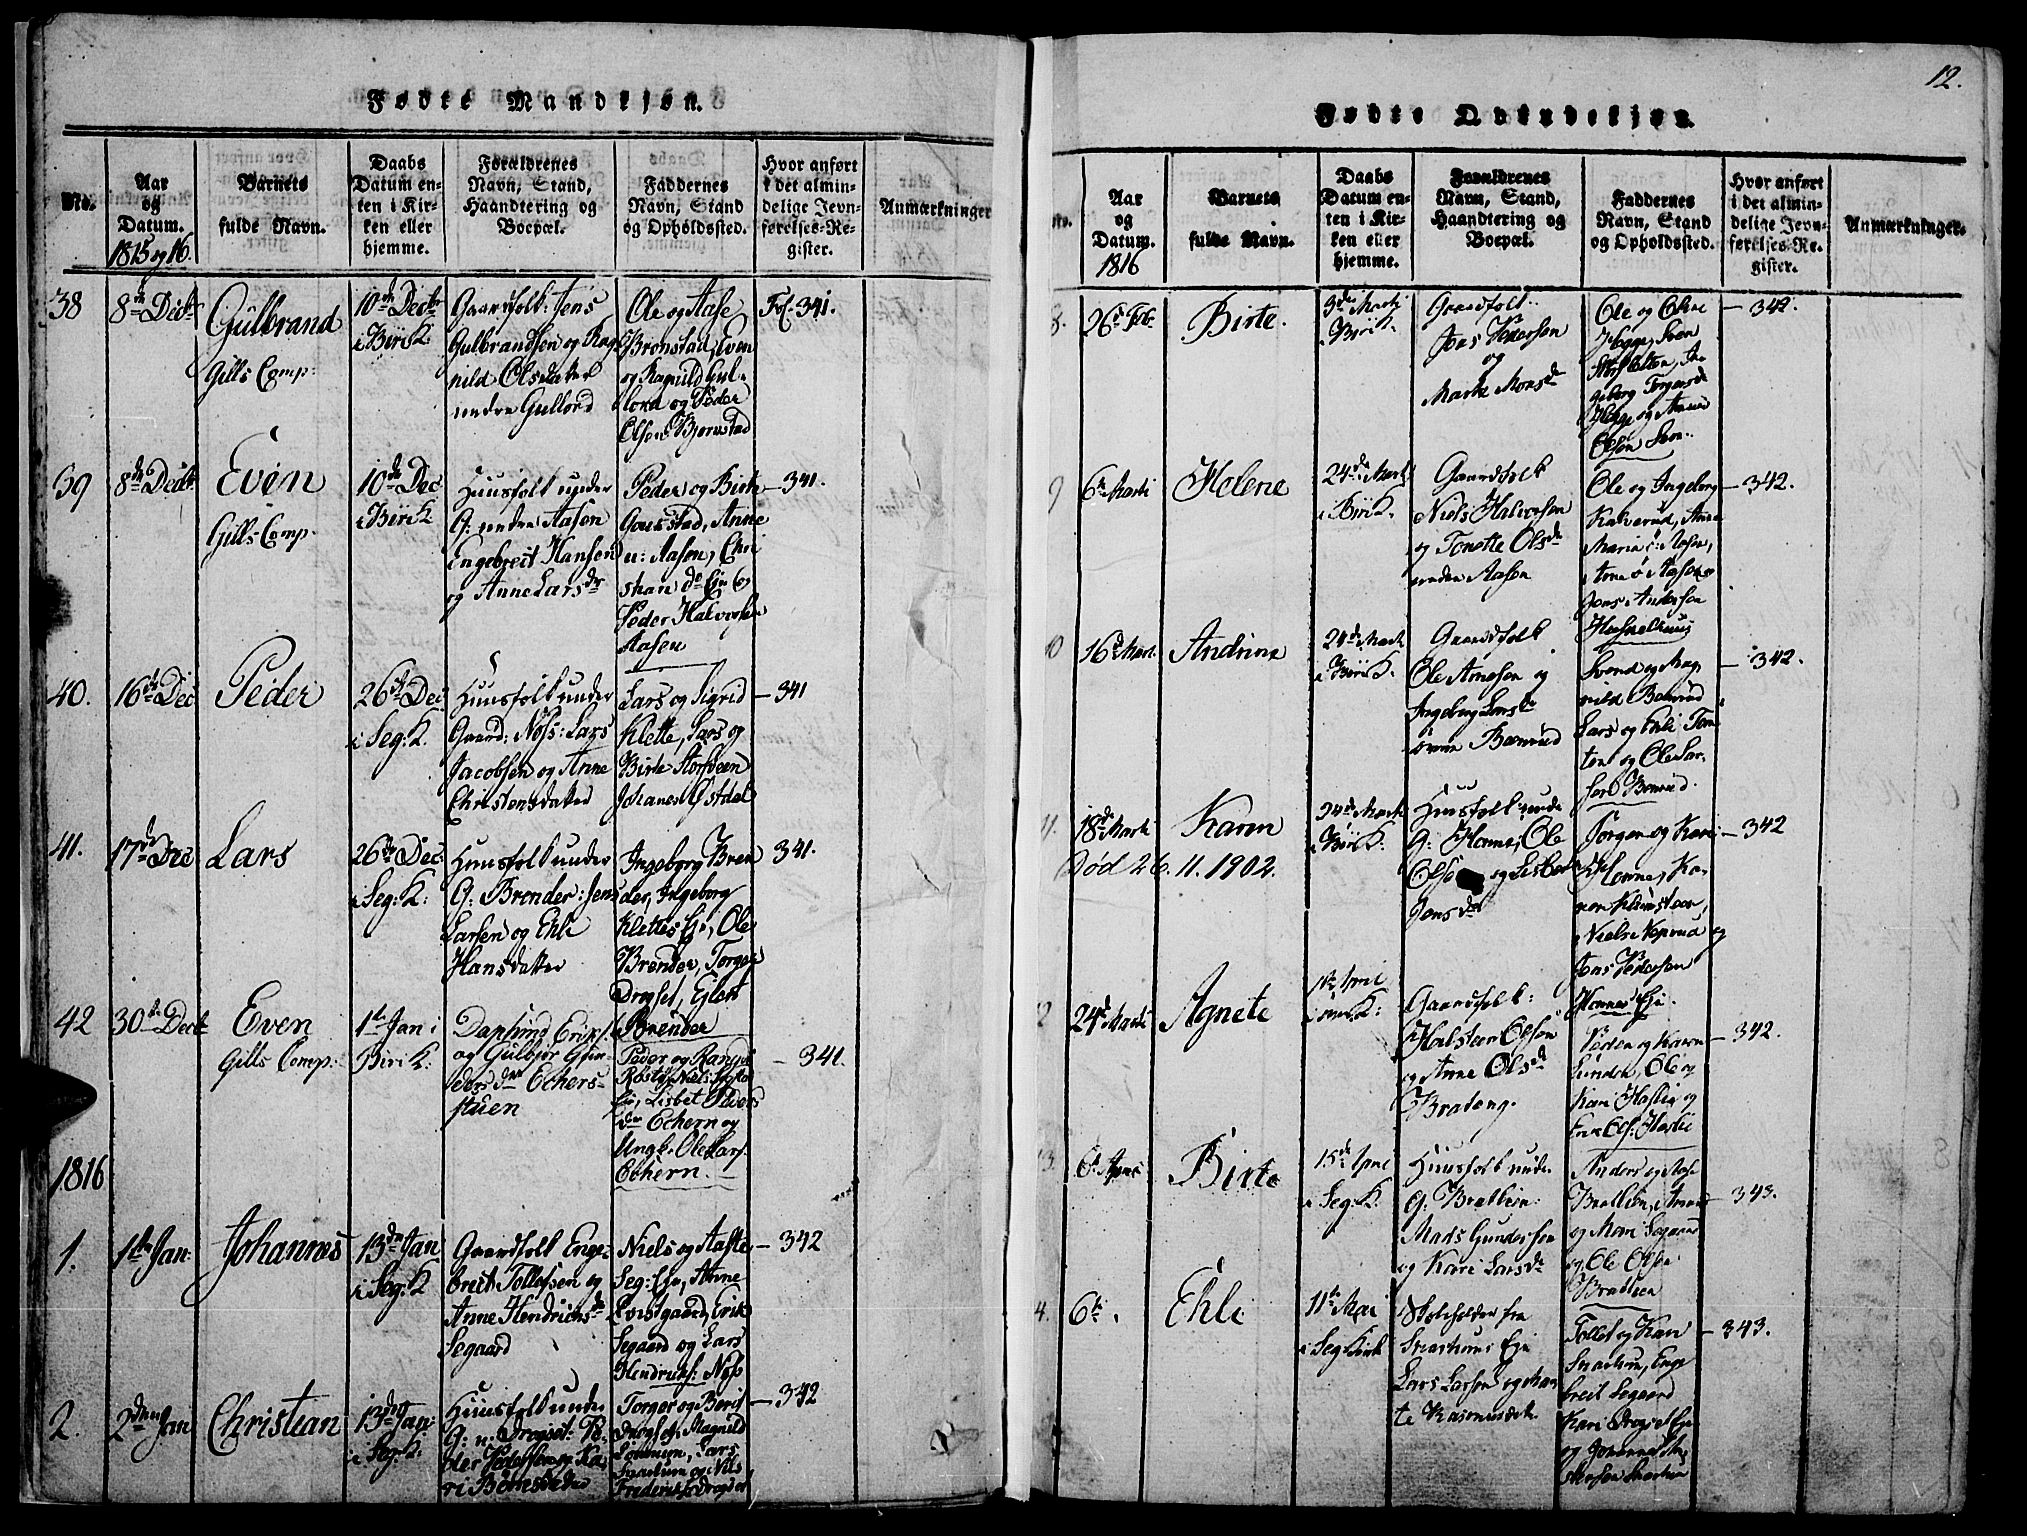 Fødte Mandkjøn.
No.
Aar
og
Datum.
1815 og 16.
Barnets
fulde Navn.
Daabs
Datum en-
ten i Kir-
ken eller
hjemme.
Forældrenes
Navn, Stand,
Haandtering og
Boepæl.
Faddernes
Navn, Stand
og Opholdssted.
Hvor anført
i det almin-
delige Jevn-
førelses-Re-
gister.
Anmærkninger
38
8de Decbr
Gulbrand
Gills Comp:
10de Decbr
i Biri K.
Gaardfolk: Jens
Gulbrandsen og Rag-
nild Olsdatter
nedre Gullord
Ole og Aase
Bronstad, Even
og Ragnild Gul-
lord og Peder
Olsen Bjørnstad
Fol. 341.
39
8de Decbr
Even
Gills Comp.
10de Dec
i Biri K
Huusfolk under
G: nedre Aasen
Engebreit Hansen
og Anne Larsdr
Peder og Birte
Gaustad, Anne
u: Aasen, Chri
stian de Eje og
Peder Halvorsen
Aasen
- 341.
40.
16de Dec
Peder
26de Dec.
i Seg: K.
Huusfolk under
Gaard: Nøss: Lars
Jacobsen og Anne
Christensdatter
Lars og Sigrid
Klette, Lars og
Birte
Johanes
- 341
41.
17de Dec
Lars
26de Dec:
i Seg: K:
Huusfolk under
G: Brender: Jens
Larsen og Ehli
Hansdatter
Ingeborg Bren
der, Ingeborg
Klettes Eje, Ole
Brender, Torger
Dragset,
Brender
341.
42
30de Decb
Even
Gills Comp:
1ste Jan i
Biri K:
Dagfind Eriks:
og Gulbjør Gun-
dersdr Echers-
stuen
Peder og
Lisbet Peders
dr Echern og
Ungk. Ole Lars:
Echern.
341.
1816
1.
1ste Jan:
Johannes
13de Jan
i Seg: K
Gaardfolk Enge-
breit Tollefsen og
Anne Hendrichsdr
Segaard
Niels og Aaste
Seg: Eje, Anne
Qvistgaard, Erik
Segaard og Lars
Hendricks: Nøss
- 342
2.
2den Jan
Christian
13de Jan:
i Seg: K:
Huusfolk unde
G: u. Dragset: Pe-
der Pedersen og Ka
ri
Torger og Berit
Dragset, Magnild
Lars
Snartum og Nils
Frederiks: Dragset
- 342
12.
Fødte Qvindekjøn.
No.
Aar
og
Datum.
1816
Barnets
fulde Navn.
Daabs
Datum en-
ten i Kir-
ken eller
hjemme.
Forældrenes
Navn, Stand,
Haandtering og
Boepæl.
Faddernes
Navn, Stand
og Opholdssted.
Hvor anført
i det almin-
delige Jevn-
førelses-Re-
gister.
Anmærkninger.
8.
26de Feb:
Birte.
3de Marti
i Biri K.
Gaardfolk:
Jens Pedersen
og
Marte Monsdr
Ole og Oline
Svend
In
geborg Torgersdr
og Amund
Olsen
- 342.
9
6te Marti
Helene
24de Marti
i Biri K.
Gaardfolk
Niels Halvorsen
og Tonette Olsdr
nedre Aasen
Ole og Ingeborg
Kalverud, Anne
Marie Aasen,
Arne ø: Aasen og
Jens Andersen
Hasselhuus
- 342.
10
16de Mart.
Andrine
24de Mart
i Biri K.
Gaardfolk
Ole Arnesen og
Ingeborg Larsdr
Bænrud
Svend og Mag
nild Bænrud
Lars og Ehli Ton-
ten og Ole Lar-
sen Bænrud.
- 342.
11.
18de Marti
Karen
Død 26. 11. 1902.
24de Marti
i Biri K:
Huusfolk unde
G: Honne, Ole
Olsen og Lisbet
Jensdr
Torger og Kari
Honne, Ka-
ren
Niels og
Jens Pedersen
Honnes Eje.
- 342
12
24de Marti
Agnete
1ste April
i K:
Gaardfolk:
Halstan Olsen
og Anne Olsdr
Brateng.
Peder og Karen
Lunden, Ole og
Kari Haslie og
Erik Ols: Haslie
- 342.
13.
6te April
Birte
15de April
i Seg: K.
Huusfolk unde
G: Bratlien:
Mads Gundersen
og Kari Larsdr
Anders og Aase
Bratlien,
og Mari Segaard
og Ole Olsen
Bratlien
- 343.
14.
6te.
Ehli
11te Mai
i Seg. Kirk
Skoleholder fra
Snartums Eje
Lars Larsen og Mar
te Rasmusdatr
Tollef og Kari
Snartum, Enge
breit Segaard
Kari Dragset Eje
og Johannes
Snartum
- 343.